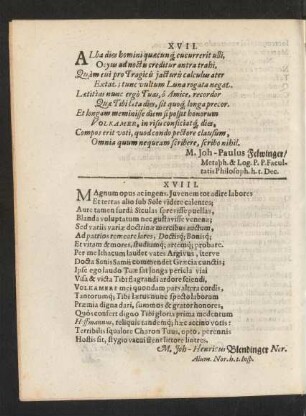 XVII.
ALba dies homini quæcunq; cucurrerit ulli,
Ocyus ad noctu creditur antra trahi,
Quàm cui pro Tragicis jacturis calculus ater
Extat: tunc vultum Luna rogata negat.
Lætitias nunc ergò Tuas, ô Amice, recordor
Quæ Tibi lata dies, sit quoq; longa precor.
Et longam meminisse diem si possit honorum
VOLKAMER, in risu consistat dies,
Compos erit voti, quod condo pectore clausum,
Omnia quum nequeam scribere, scribo nihil.
M. Joh-Paulus Felwinger/
Metaph. & Log. P. P. Facul-
tatis Philosoph. h. t. Dec.
XVIII.
MAgnum opus ac ingens, Juvenem tot adire labores
Et terras alio sub Sole videre calentes;
Aure tamen surdâ Siculas sprevisse puellas,
Blanda voluptatum nec gustavisse venena;
Sed variis variæ doctrinæ mercibus auctum,
Ad patrios remeare lares, Doctisq; Bonisq;
Et vitam & mores, studiumq; artemq; probare.
Per mel haustum laudet vates Argivus, iterve
Docta Sonis Samii commendet Græcia cunctis;
Ipse ego laudo Tuæ sat longa pericla viai
Visa & victa Tibi flagranti ardore sciendi,
VOLKAMERE mei quondam pars altera cordis,
Tantorumq; Tibi lætus nunc specto laborum
Præmia digna dari, summos & grator honores.
Quos confert digno Tibi gloria prima medentum
Hoffmannus, reliquis tandemq; hæc accino votis:
Terribilis squalore Charon Tuus, opto, perennis
Hostis sit, stygio vacui stent littore luntres.
M. Joh-Henricus Blendinger Nor.
Alum. Nor. h. t. Insp.